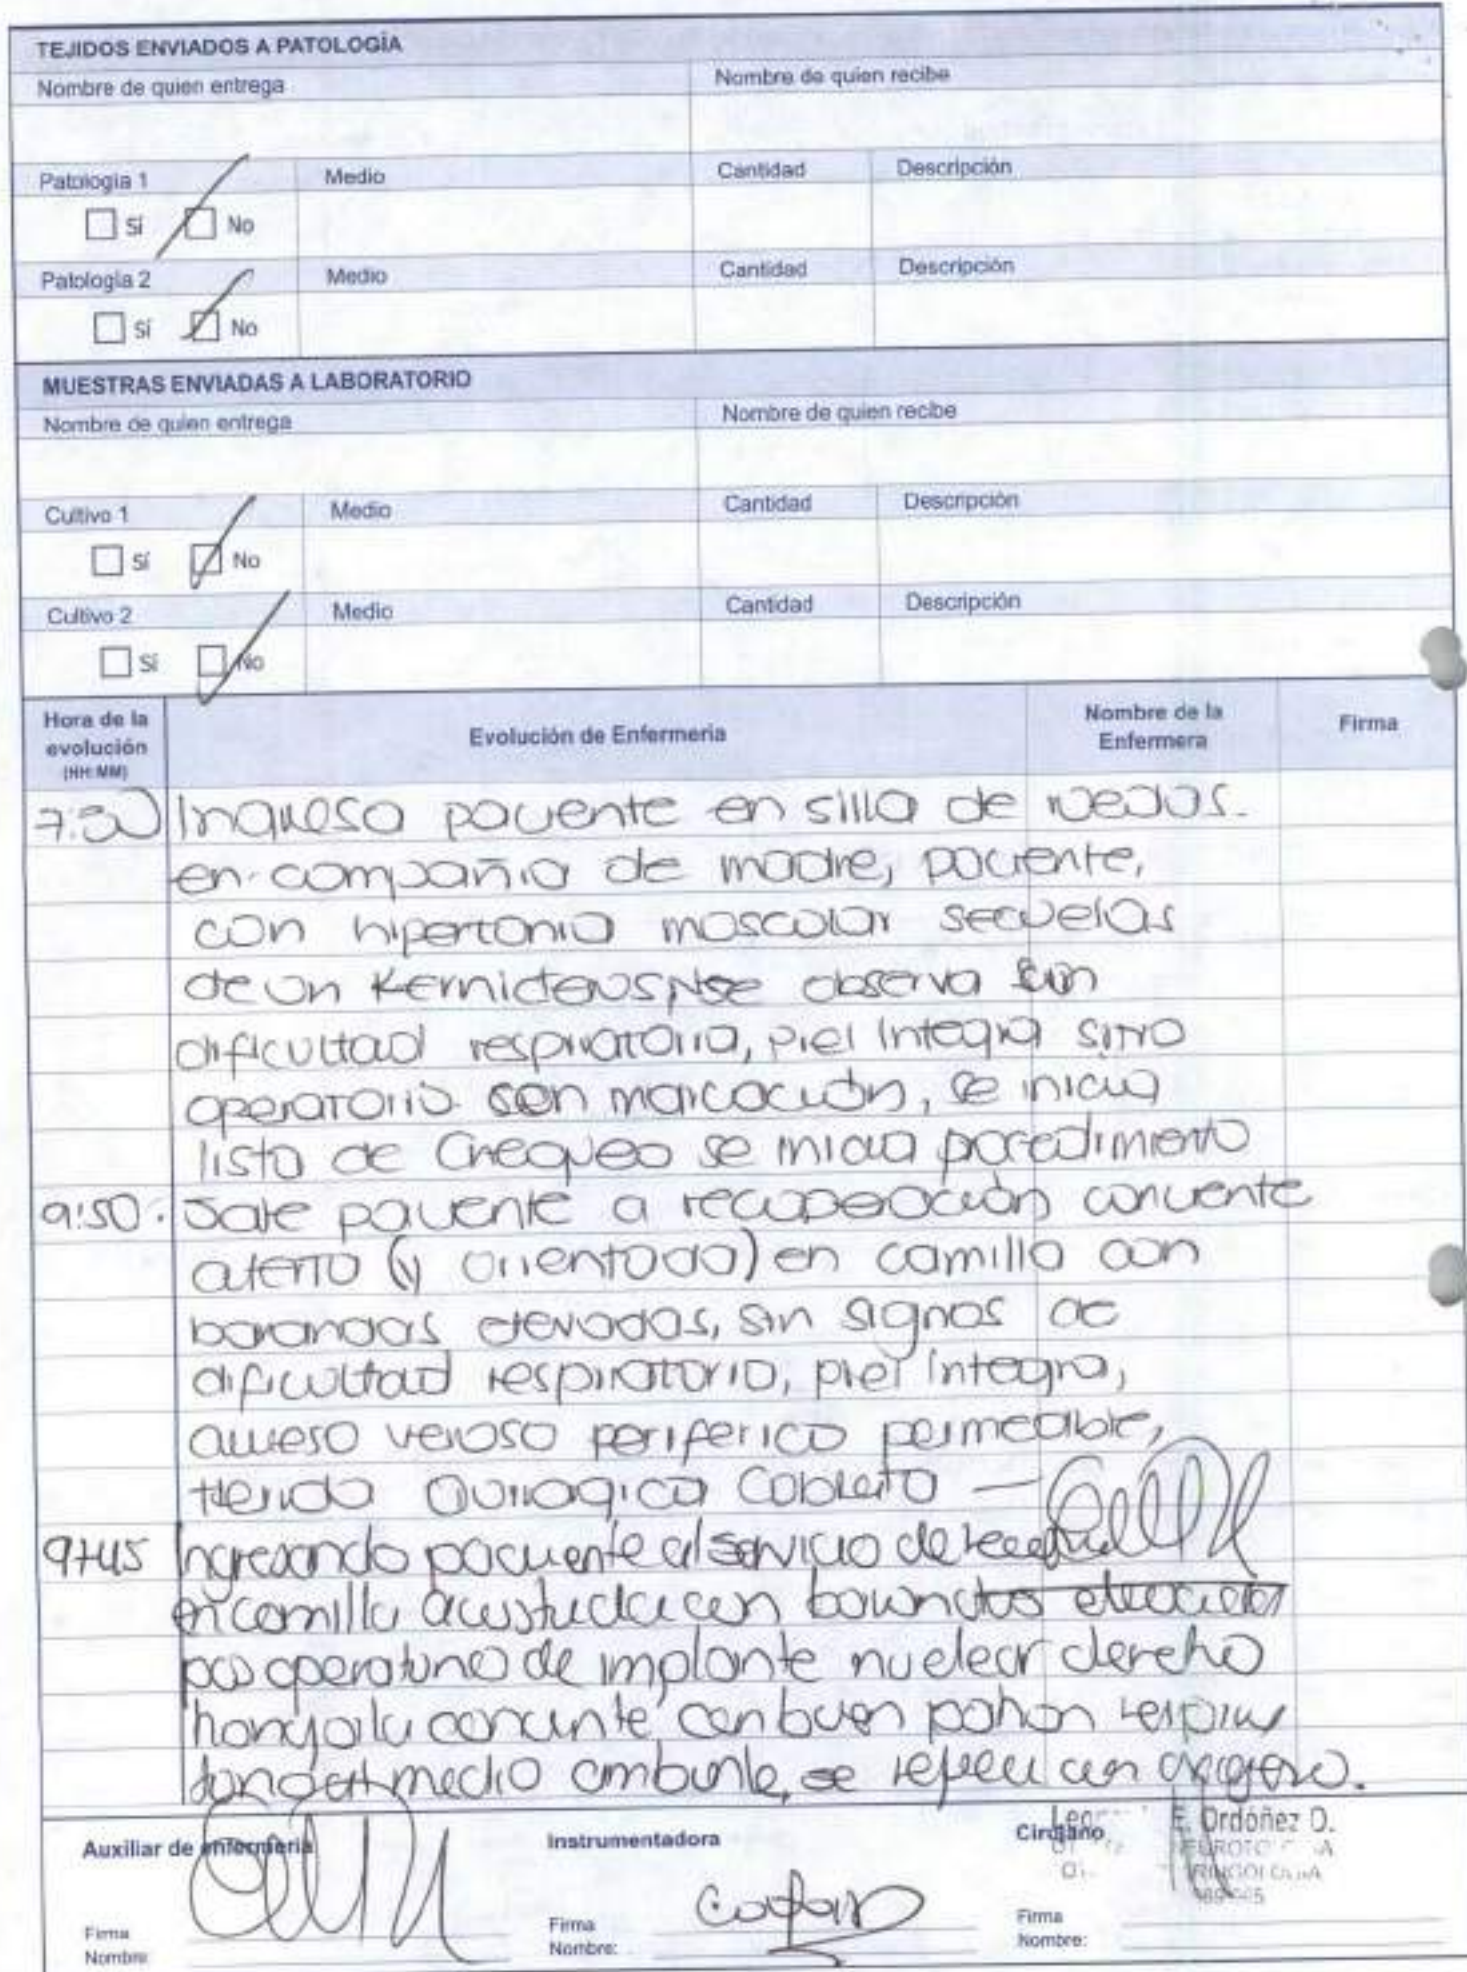 TEJIDOS ENVIADOS A PATOLOGÍA
Nombre de quien entrega Nombre de quien recibe
Patología 1 Medio Cantidad Descripción
Sí No
Patología 2 Medio Cantidad Descripción
Sí No
MUESTRAS ENVIADAS A LABORATORIO
Nombre de quien entrega Nombre de quien recibe
Cultivo 1 Medio Cantidad Descripción
Sí No
Cultivo 2 Medio Cantidad Descripción
Sí No
Hora de la evolución (HH:MM) Evolución de Enfermería Nombre de la Enfermera Firma
7:30 Ingresa paciente en silla de ruedas.
en compañia de madre, paciente,
con hipertonia moscolar secuelas
de un Kernicterus, se observa sin
dificultad respiratoria, piel integra sitio
operatorio con marcación, se inicia
lista de Chequeo se inicia procedimiento
9:50. Sale paciente a recuperación conciente
alerta (y orientada) en camilla con
barandas elevadas, sin signos de
dificultad respiratoria, piel integra,
acceso venoso periferico permeable,
herida Quirurgica Cobierta —
9+45 Ingresando paciente al servicio de
en camilla acostada con barandas elevadas
pos operatorio de implante derecho
conciente con buen patron
medio ambiente, se
Auxiliar de enfermería Instrumentadora Cirujano
E. Ordóñez O.
Firma Firma Firma
Nombre: Nombre: Nombre: